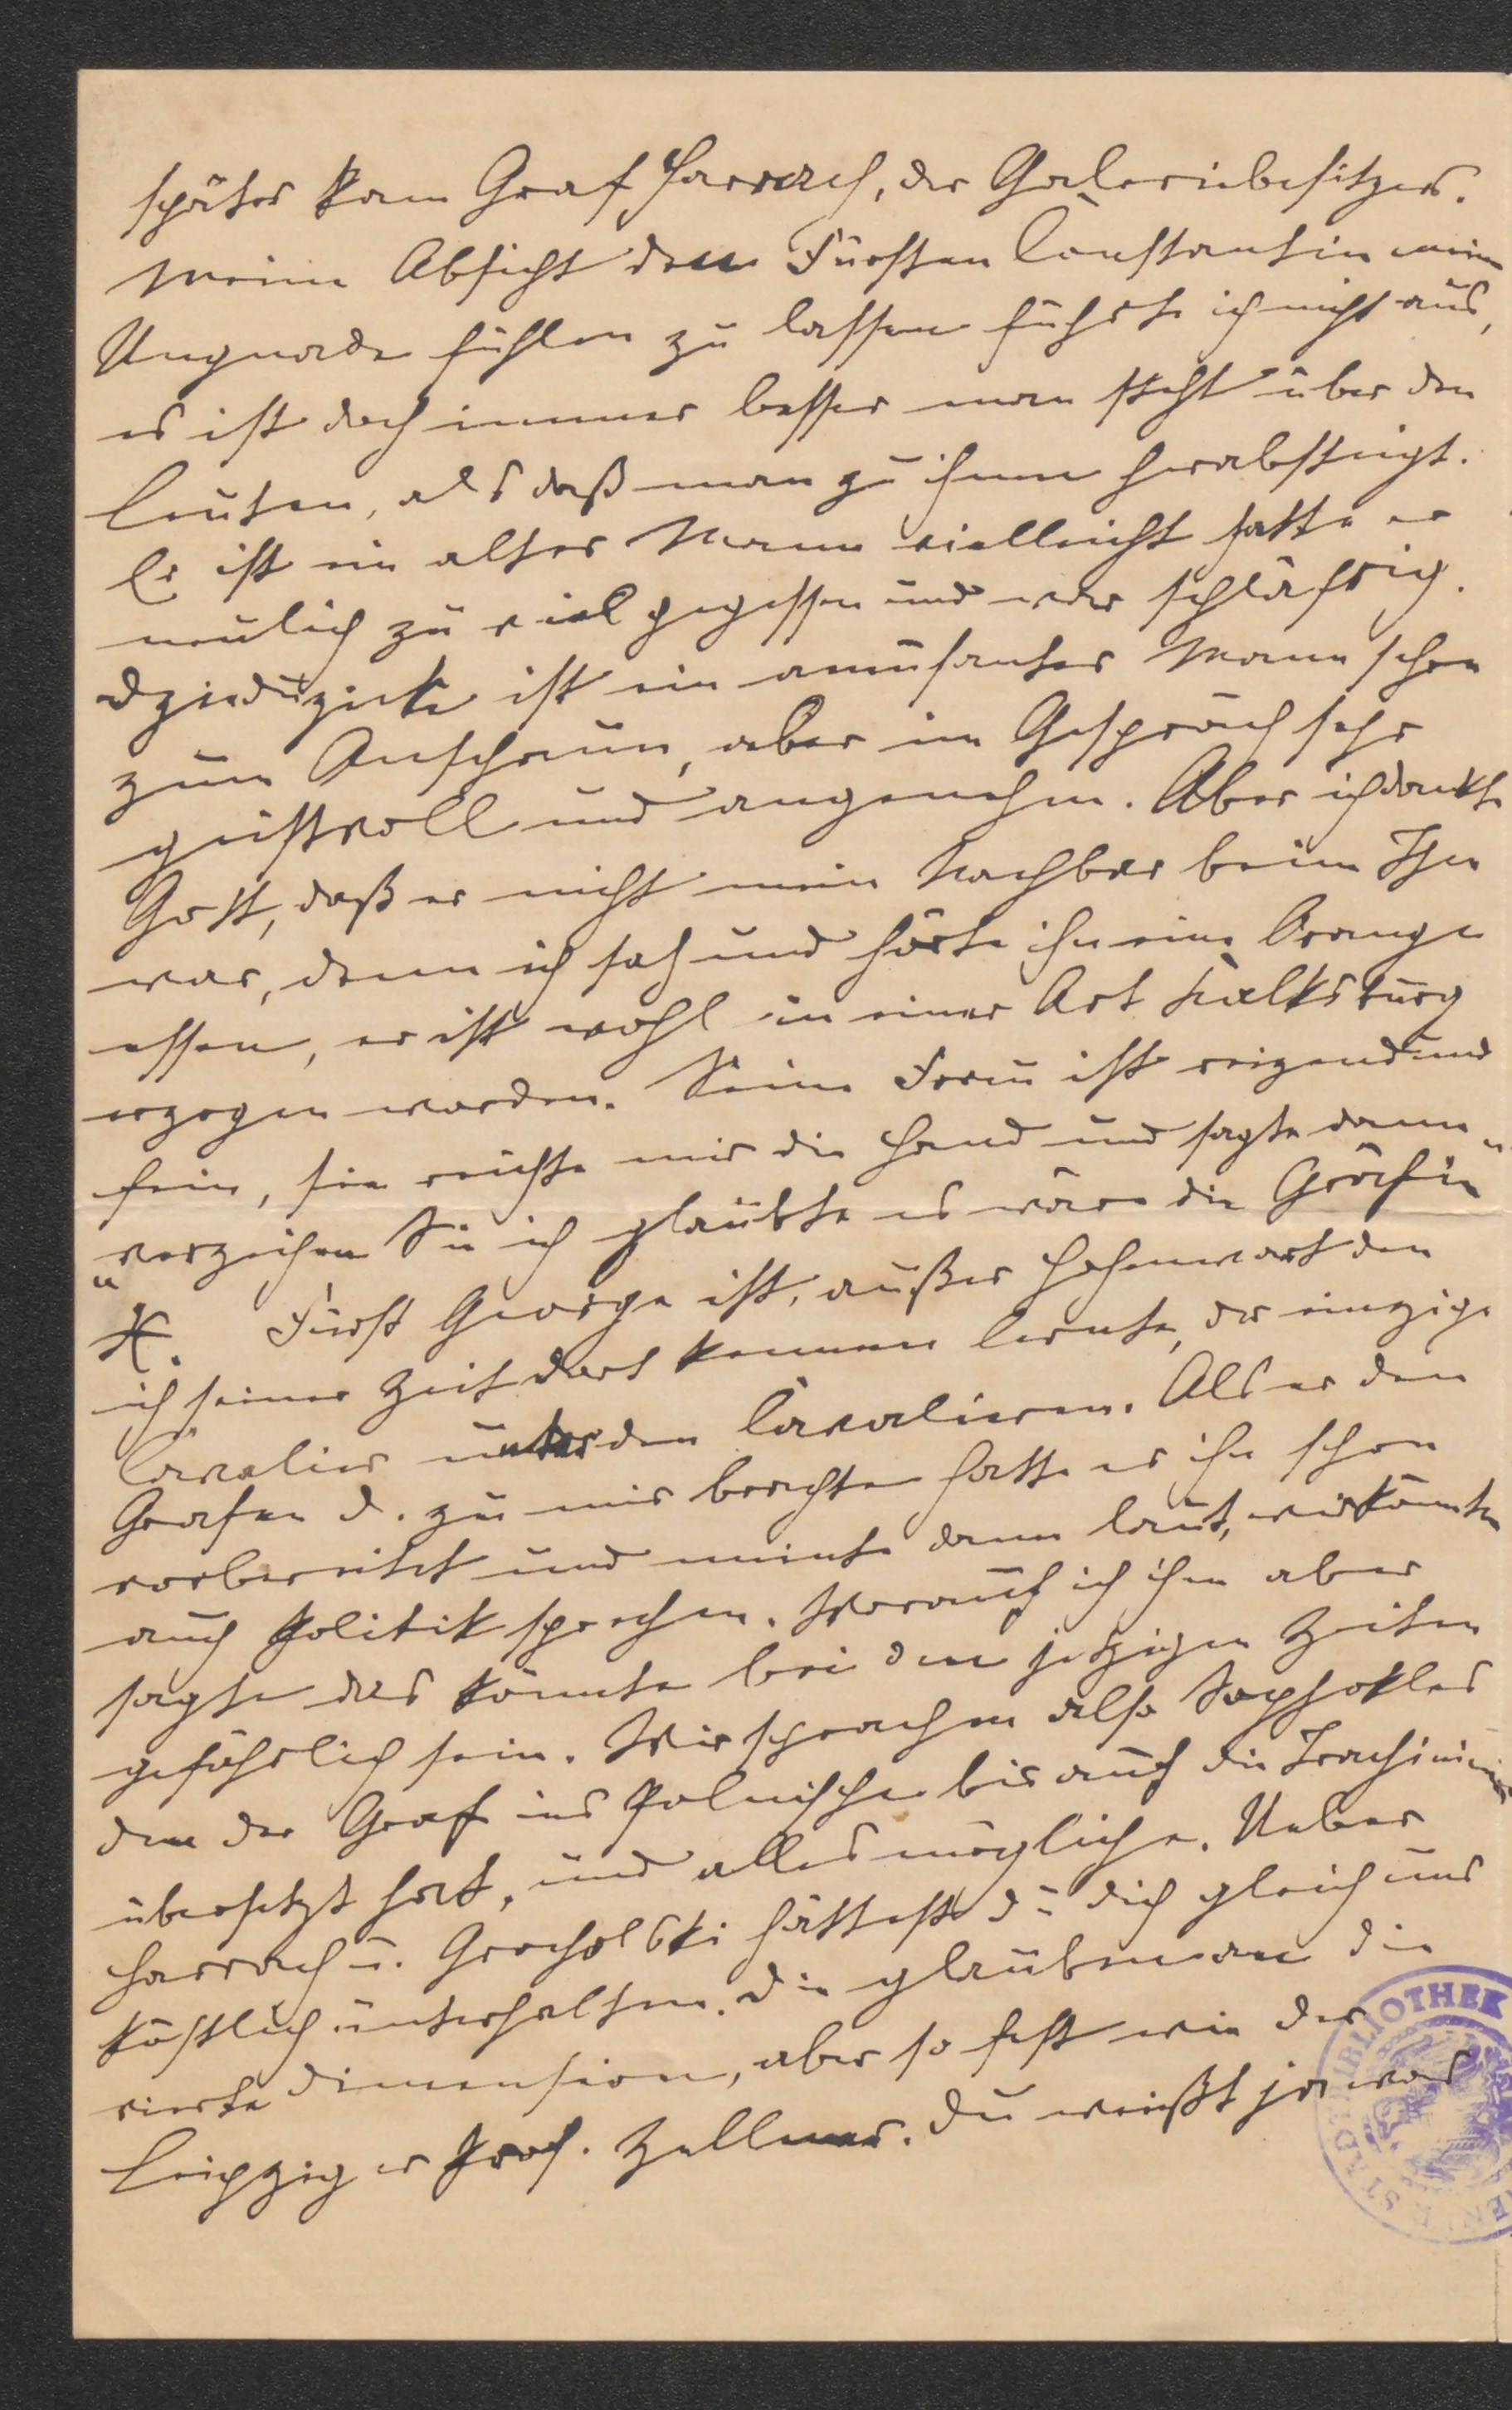 später kam Graf Harrach, der Galeriebesitzer.
Meine Absicht dem Fürsten Constantin meine
Ungnade fühlen zu lassen führte ich nicht aus,
es ist doch immer besser man steht über den
Leuten, als daß man zu ihnen herabsteigt.
Er ist ein alter Mann vielleicht hatte er
neulich zu viel gegessen und war schläfrig.
Dzieduzicki ist ein amüsanter Mann schon
zum Anschauen, aber im Gespräch sehr
geistvoll und angenehm. Aber ich dankte
Gott, daß er nicht mein Nachbar beim Thee
war, denn ich sah und hörte ihn eine Orange
essen, er ist wohl in einer Art Kalksburg
erzogen worden. Seine Frau ist reizend und
fein, sie reichte mir die Hand und sagte dann
„verzeihen Sie ich glaubte es wäre die Gräfin
X." Fürst George ist, außer Hohenwart den
ich seiner Zeit dort kennen lernte, der einzige
Cavalier unter den Cavalieren. Als er den
Grafen D. zu mir brachte hatte er ihn schon
vorbereitet und meinte dann laut, wir könnten
auch Politik sprechen. Worauf ich ihm aber
sagte das könnte bei den jetzigen Zeiten
gefährlich sein. Wir sprachen also Sophokles
den der Graf ins Polnische bis auf die Trachinierinnen
übersetzt hat, und alles mögliche. Ueber
Harrach u. Grocholski hättest Du Dich gleich uns
köstlich unterhalten. Die glauben an die
vierte Dimension, aber so fest wie der
Leipziger Prof. Zöllner. Du weißt ja was
BIBLIOTHEK
STADT